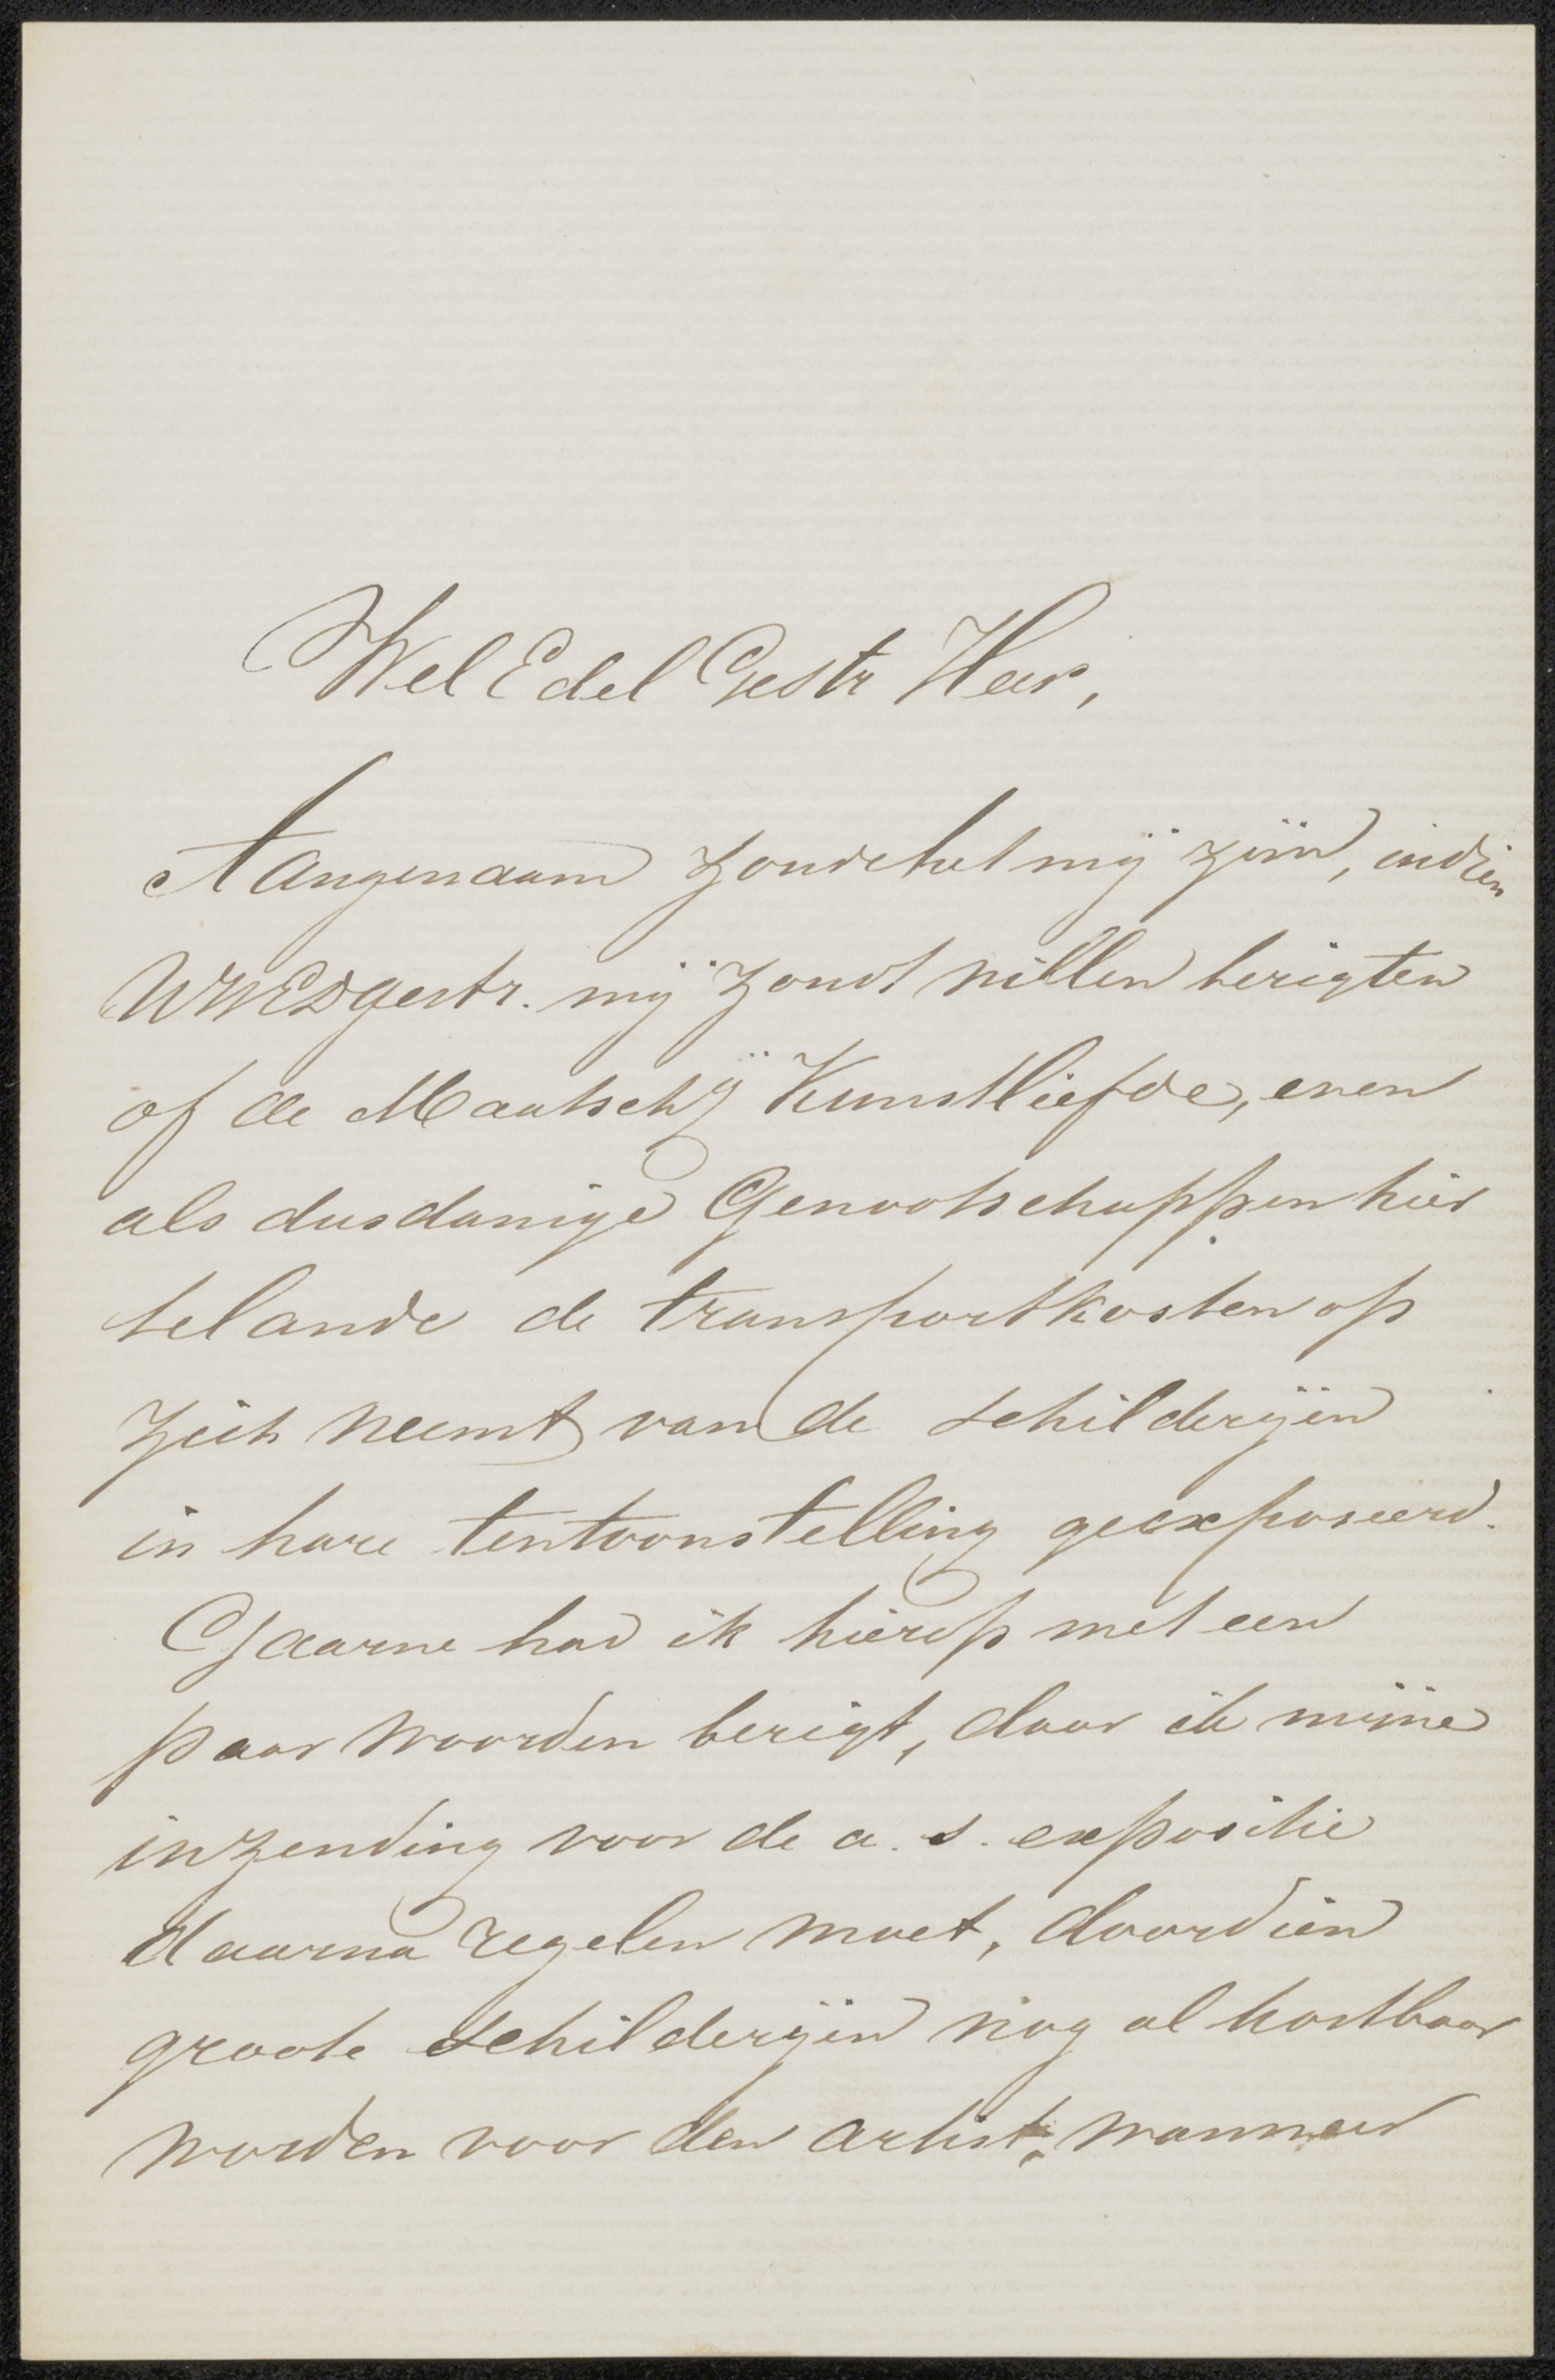 Wel Edel Gestr Heer,
Aangenaam zoude het mij zijn, indien
UWEDgestr. mij zoudt willen berigten
of de Maatschij Kunstliefde, even
als dusdanige Genootschappen hier
telande de transportkosten op
zich neemt van de schilderijen
in hare tentoonstelling geexposeerd.
Gaarne had ik hierop met een
paar woorden berigt, daar ik mijne
inzending voor de a.s. expositie
daarna regelen moet, doordien
groote schilderijen nog al kostbaar
worden voor den artist, wanneer